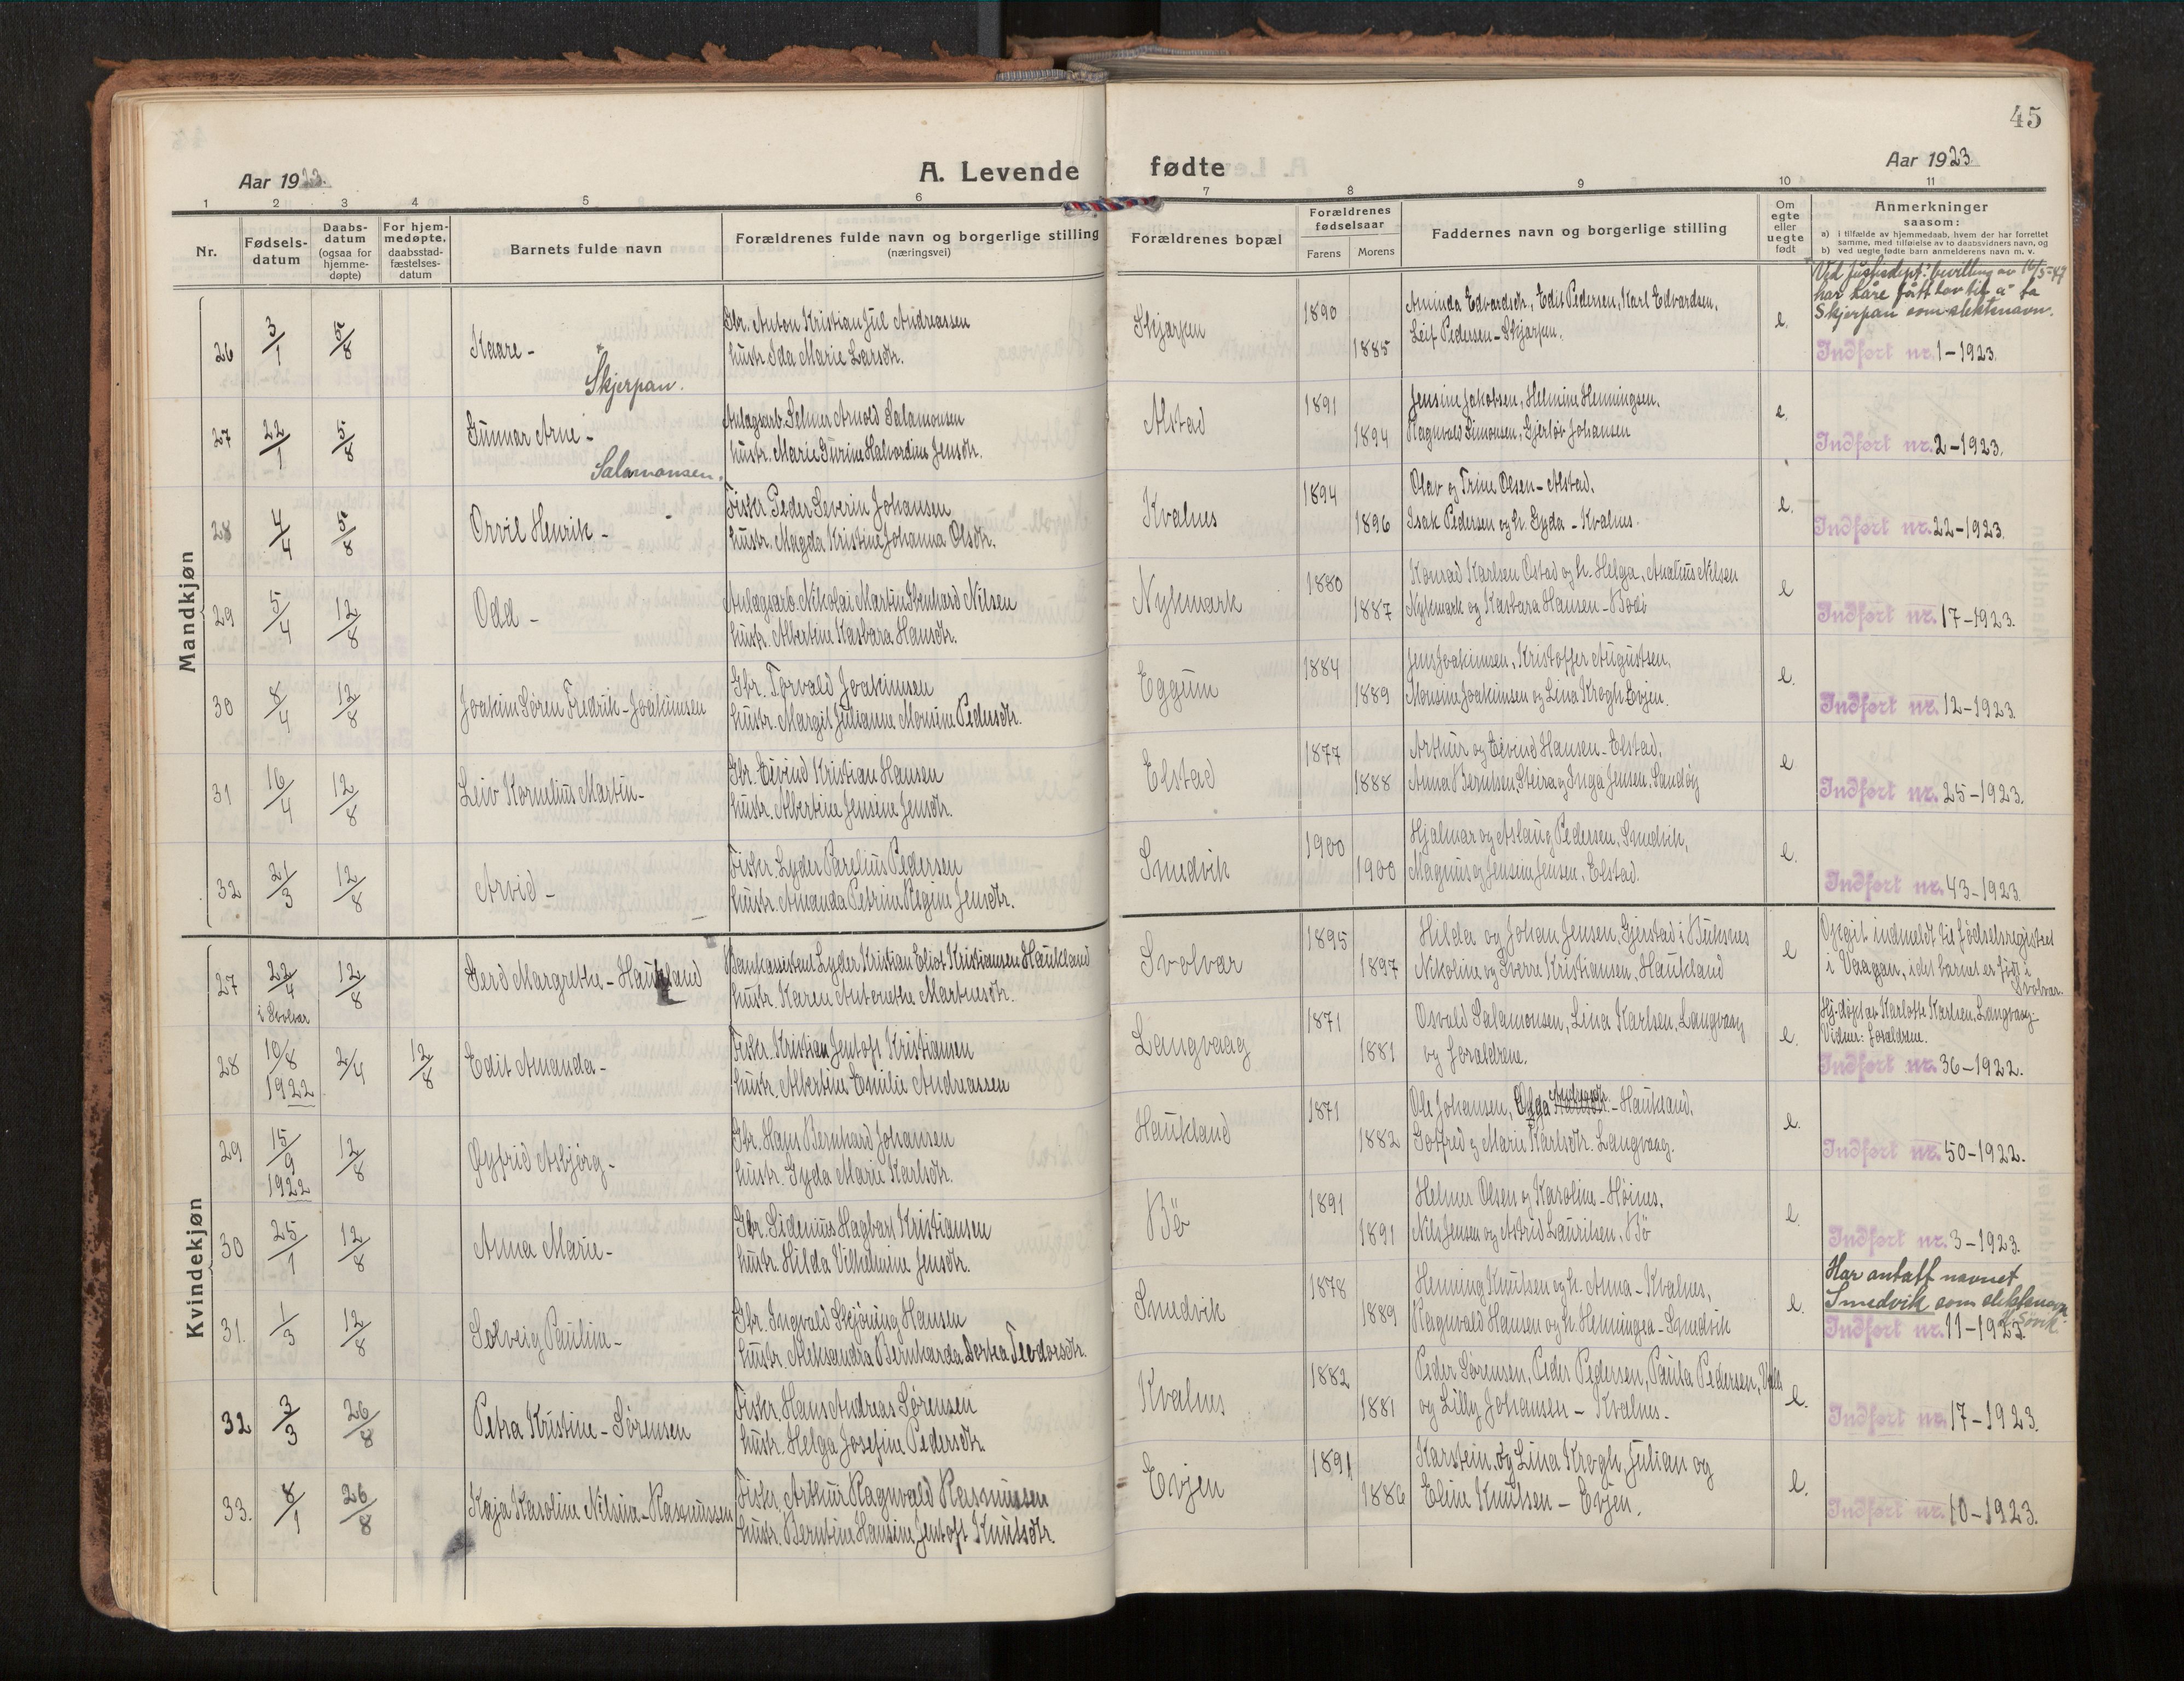 45
Aar 1923. A. Levende fødte Aar 1923
1 2 3 4 5 6 7 8 9 10 11
Nr. Fødsels-datum Daabs-datum (ogsaa for hjemme-døpte) For hjem-medøpte, daabsstad-fæstelses-datum Barnets fulde navn Forældrenes fulde navn og borgerlige stilling (næringsvei) Forældrenes bopæl Forældrenes fødselsaar Farens Morens Faddernes navn og borgerlige stilling Om egte eller uegte født Anmerkninger saasom:
a) i tilfælde av hjemmedaab, hvem der har forrettet samme, med tilføielse av to daabsvidners navn, og
b) ved uegte fødte barn anmelderens navn m. v.
Mandkjøn
26 3/1 5/8 Kaare - Skjerpan.
Gbr. Anton Kristian Juel Andreassen
hustr. Ida Marie Larsdtr.
Skjerpen 1890 1885
Aminda Edvardsdtr., Edit Pedersen, Karl Edvardsen,
Leif Pedersen - Skjerpen.
e.
Ved Justisdept.s bevilling av 16/5-49
har Kåre fått lov til å ta
Skjerpan som slektsnavn.
Indført nr. 1-1923.
27 22/1 5/8 Gunnar Arne - Salamonsen.
Anlægsarb. Selmer Arnold Salamonsen
hustr. Marie Gurine Halvardine Jensdtr.
Alstad 1891 1894
Jensine Jakobsen, Helmine Henningsen,
Ragnvald Simonsen, Gjerløv Johansen
e.
Indført nr. 2-1923.
28 4/4 5/8 Orvil Henrik -
Fisker Peder Severin Johansen
hustr. Magda Kristine Johanna Olsdtr.
Kvalnes 1894 1896
Olav og Trine Olsen - Alstad,
Isak Pedersen og h. Gyda - Kvalnes.
e.
Indført nr. 22-1923.
29 5/4 12/8 Odd -
Anlægsarb. Nikolai Martin Ibenhard Nilsen
hustr. Albertine Kasbara Hansdtr.
Nykmark 1880 1887
Konrad Karlsen Ostad og h. Helga, Analius Nilsen
Nykmark og Kasbara Hansen - Bodö
e
Indført nr. 17-1923.
30 8/4 12/8 Joakim Søren Fredrik - Joakimsen
Gbr. Torvald Joakimsen
hustr. Margit Julianne Monsine Pedersdtr.
Eggum 1884 1889
Jens Joakimsen, Kristoffer Augustsen,
Monsine Joakimsen og Lina Krogh Evjen.
e.
Indført nr. 12-1923
31 16/4 12/8 Leiv Kornelius Martin -
Gbr. Eivind Kristian Hansen
hustr. Albertine Jensine Jensdtr.
Elstad 1877 1888
Arthur og Eivind Hansen - Elstad,
Anna Berntsen, Steira og Inga Jensen, Sandöy
e
Indført nr. 25-1923.
32 21/3 12/8 Arvid -
Fisker Lyder Parelius Pedersen
hustr. Amanda Petrine Regine Jensdtr.
Smedvik 1900 1900
Hjalmar og Aslaug Pedersen, Smedvik,
Magnus og Jensine Jensen, Elstad.
e.
Indført nr. 43-1923.
Kvindekjøn
27 22/4 i Svolvær 12/8 Gerd Margrethe - Haukland
Bankassistent Lyder Kristian Eliot Kristiansen Haukland
hustr. Karen Antonette Martinsdtr.
Svolvær 1895 1897
Hilda og Johan Jensen, Gjerstad i Buksnes
Nikoline og Sverre Kristiansen, Haukland
e
Opgit indmeldt til fødselsregistret
i Vaagan, idet barnet er født i
Svolvær.
28 10/8 1922 2/4 12/8 Edit Amanda -
Fisker Kristian Jentoft Kristiansen
hustr. Albertine Emilie Andreassen
Langvaag 1871 1881
Osvald Salamonsen, Lina Karlsen, Langvaag
og forældrene.
e.
Hj.døpt av Karlotte Karlsen, Langvaag.
Vidner: forældrene.
Indført nr. 36-1922.
29 15/9 1922 12/8 Oyfrid Asbjørg -
Gbr. Hans Bernhard Johansen
hustr. Gyda Marie Karlsdtr.
Haukland 1871 1882
Ole Johansen, Olga Andreasdtr. - Haukland,
Gotfred og Marie Karlsdtr. Langvaag.
e.
Indført nr. 50-1922.
30 25/1 12/8 Anna Marie -
Gbr. Sidenius Hagbart Kristiansen
hustr. Hilda Vilhelmine Jensdtr.
Bö 1891 1891
Helmer Olsen og Karoline - Höines,
Nils Jensen og Astrid Lauritsen, Bö
e.
Indført nr. 3-1923.
31. 1/3 12/8 Solveig Pauline -
Gbr. Ingvald Skjöning Hansen
hustr. Aleksandra Bernharda Dortea Teodorsdtr.
Smedvik 1878 1889
Henning Knutsen og h. Anna - Kvalnes,
Ragnvald Hansen og h. Henninga - Smedvik
e.
Har antatt navnet
Smedvik som slektsnavn
Indført nr. 11-1923.
32 3/3 26/8 Petra Kristine - Sørensen
Fisker Hans Andreas Sørensen
hustr. Helga Josefine Pedersdtr.
Kvalnes 1882 1881
Peder Sørensen, Peder Pedersen, Paula Pedersen,
og Lilly Johansen - Kvalnes.
e.
Indført nr. 17-1923.
33. 8/1 26/8 Kaja Karoline Nilsina - Rasmussen
Fisker Arthur Ragnvald Rasmussen
hustr. Berntine Hansine Jentoft Knutsdtr.
Evjen 1891 1886
Karstein og Lina Krogh, Julian og
Eline Knutsen - Evjen.
e.
Indført nr. 10-1923.